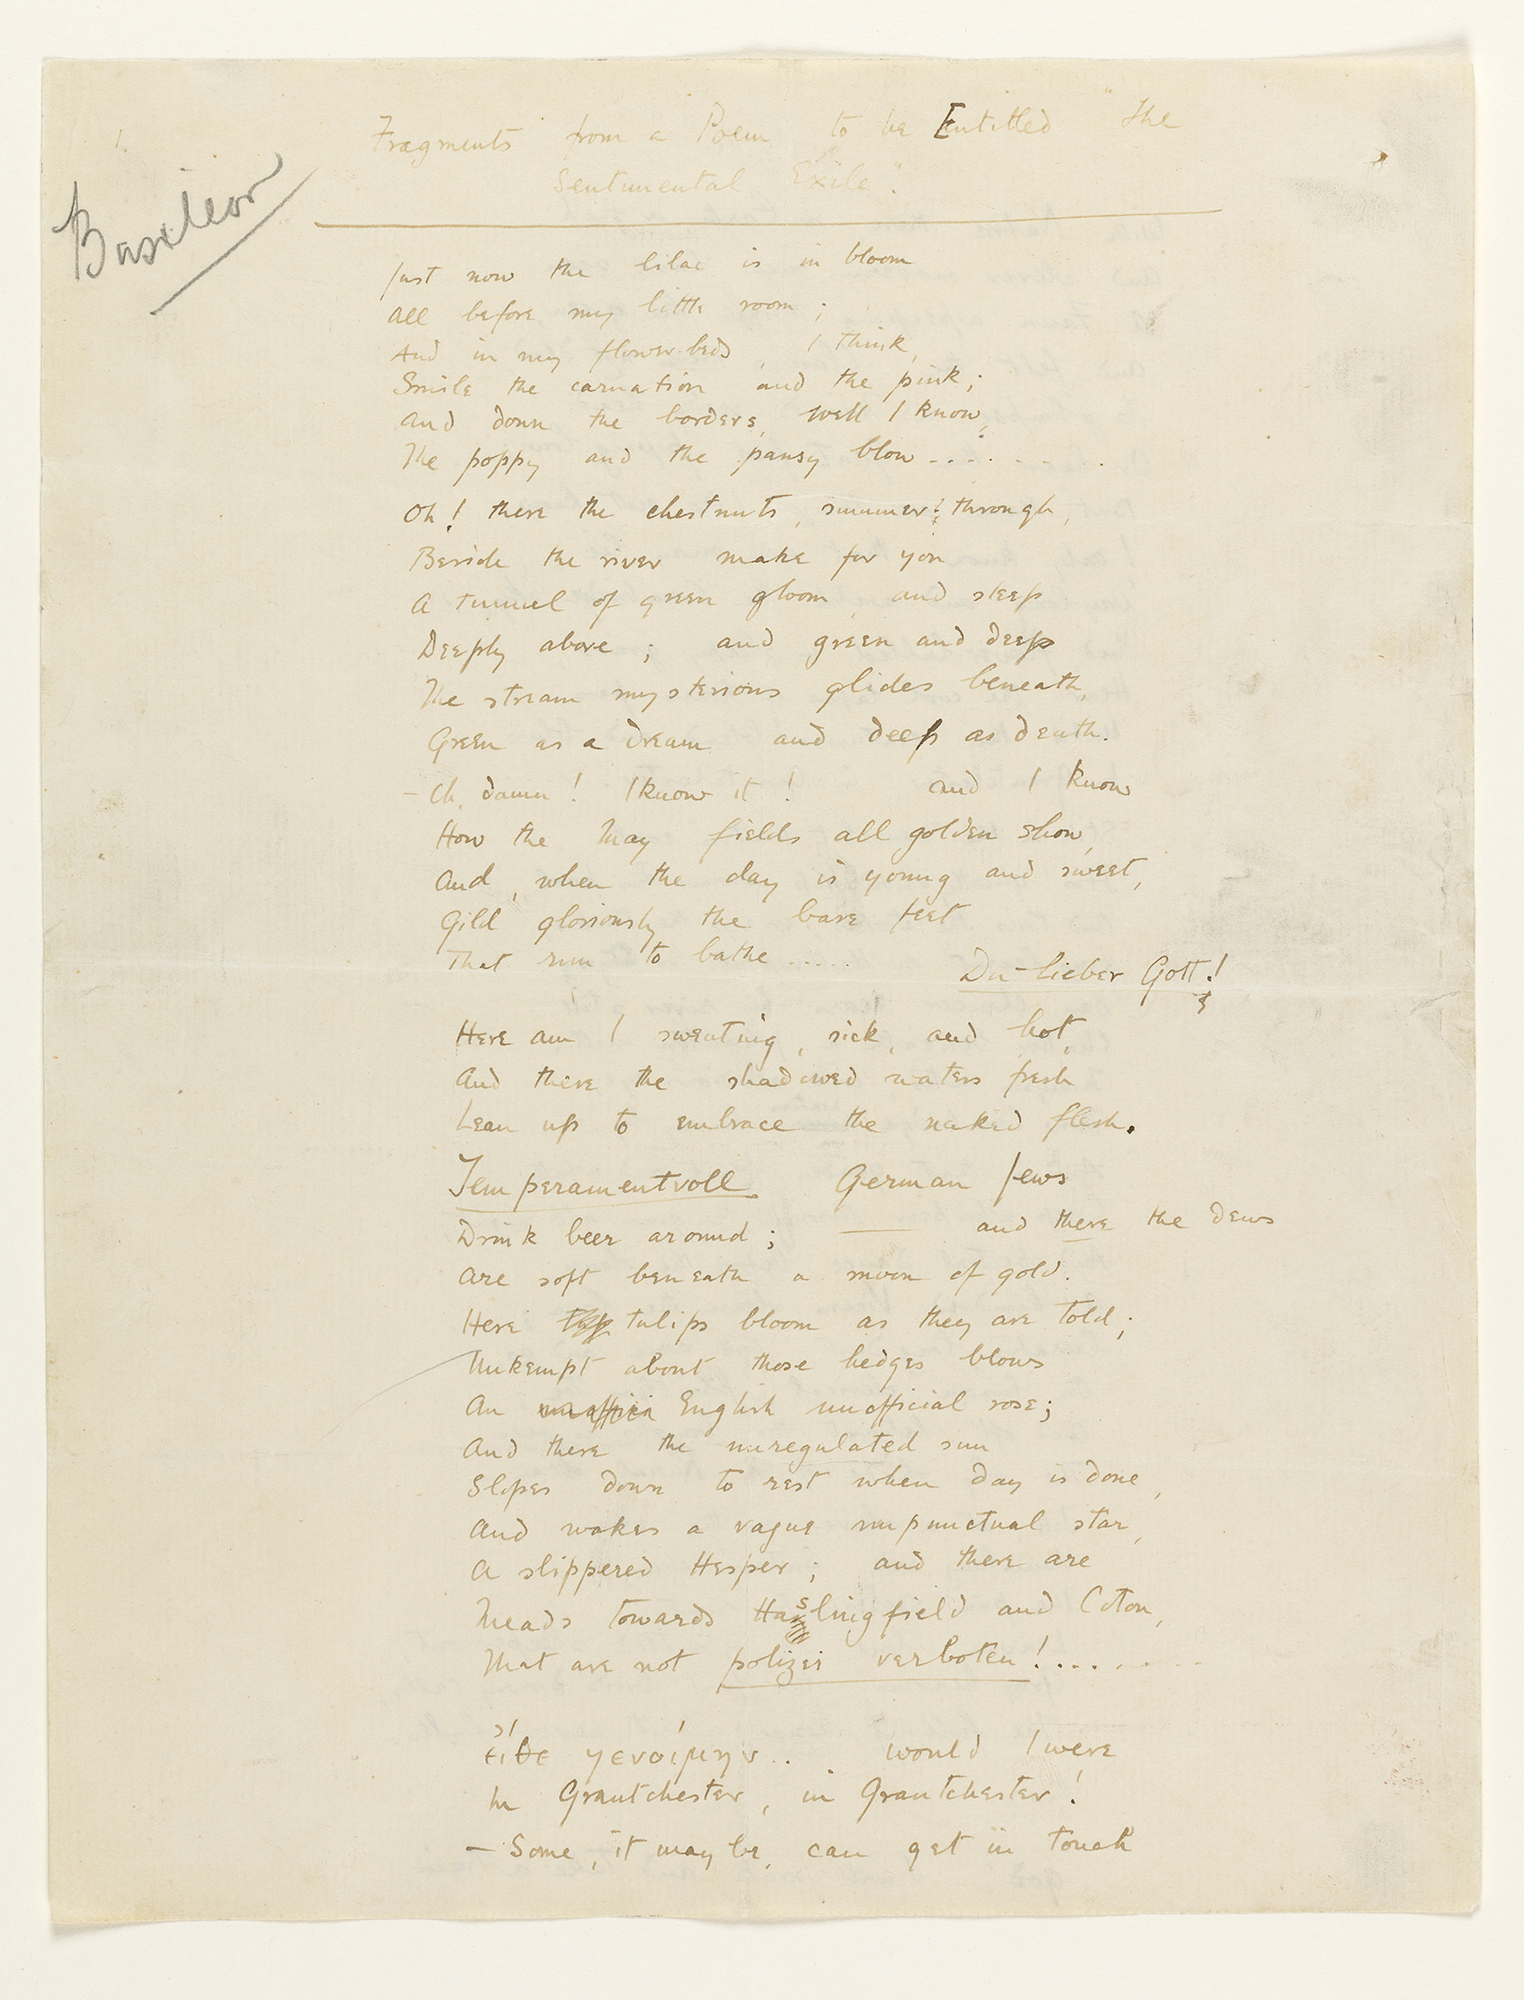 1.
Fragments from a Poem to be Entitled "The
Sentimental Exile".
Basileon
Just now the lilac is in bloom
All before my little room;
And in my flower-beds, I think,
Smile the carnation and the pink;
And down the borders, well I know,
The poppy and the pansy blow........
Oh! there the chestnuts, summer through,
Beside the river make for you
A tunnel of green gloom, and sleep
Deeply above; and green and deep
The stream mysterious glides beneath,
Green as a dream and deep as death.
- Oh, damn! I know it! and I know
How the May fields all golden show,
And, when the day is young and sweet,
Gild gloriously the bare feet
That run to bathe.....
Du lieber Gott!
Here am I sweating, sick, and hot,
And there the shadowed waters fresh
Lean up to embrace the naked flesh.
Temperamentvoll German Jews
Drink beer around; — and there the dews
Are soft beneath a moon of gold.
Here tulips bloom as they are told;
Unkempt about those hedges blows
An English unofficial rose;
And there the unregulated sun
Slopes down to rest when day is done,
And wakes a vague unpunctual star,
A slippered Hesper; and there are
Meads towards Haslingfield and Coton,
That are not polizei verboten!.......
εἴθε γενοίμην.. would I were
In Grantchester, in Grantchester!
- Some, it may be, can get in touch